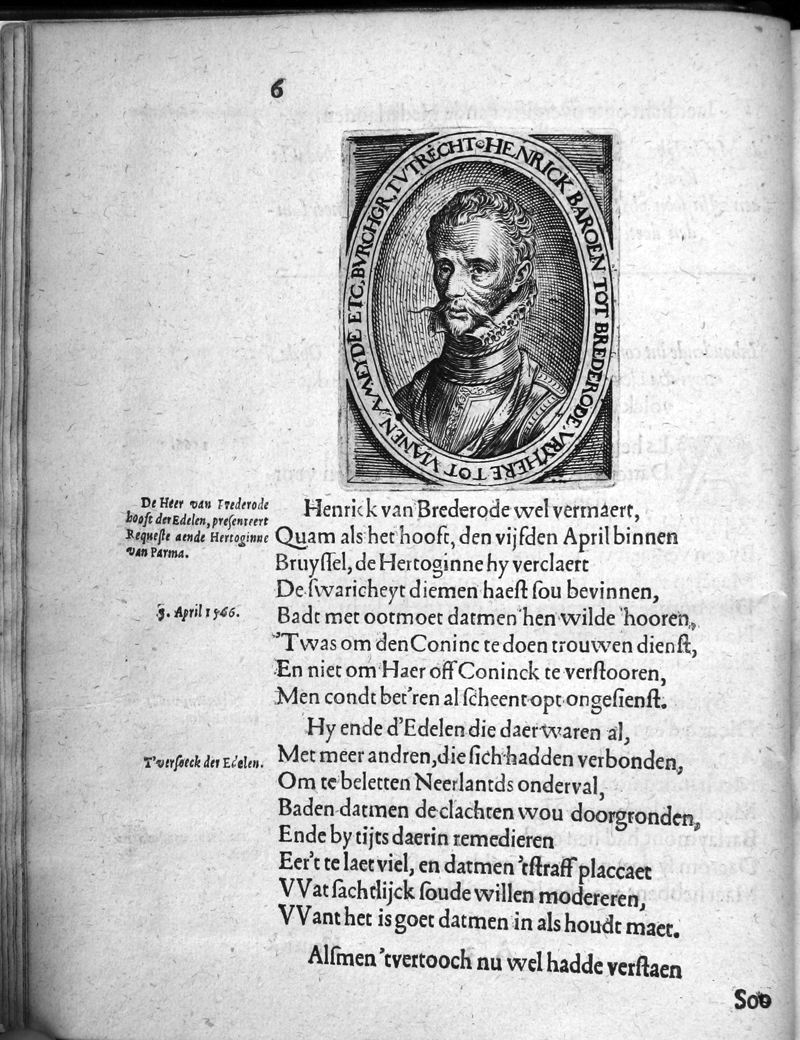 6
HENRICK BAROEN TOT BREDERODE. VRYHERE TOT VIANEN. AMEYDE ETC. BVRCHGR. TVTRECHT.
De Heer van Brederode
hooft der Edelen, presenteert
Requeste aende Hertoginne
van Parma.
Henrick van Brederode wel vermaert,
Quam als het hooft, den vijfden April binnen
Bruyssel, de Hertoginne hy verclaert
De swaricheyt diemen haest sou bevinnen,
5. April 1566.
Badt met ootmoet datmen hen wilde hooren,
'Twas om den Coninc te doen trouwen dienst,
En niet om Haer off Coninck te verstooren,
Men condt bet'ren al scheent opt ongesienst.
Hy ende d'Edelen die daer waren al,
T'versoeck der Edelen.
Met meer andren, die sich hadden verbonden,
Om te beletten Neerlantds onderval,
Baden datmen de clachten wou doorgronden,
Ende by tijts daerin remedieren
Eer't te laet viel, en datmen 'tstraff placcaet
VVat sachtlijck soude willen modereren,
VVant het is goet datmen in als houdt maet.
Alsmen 'tvertooch nu wel hadde verstaen
Soo